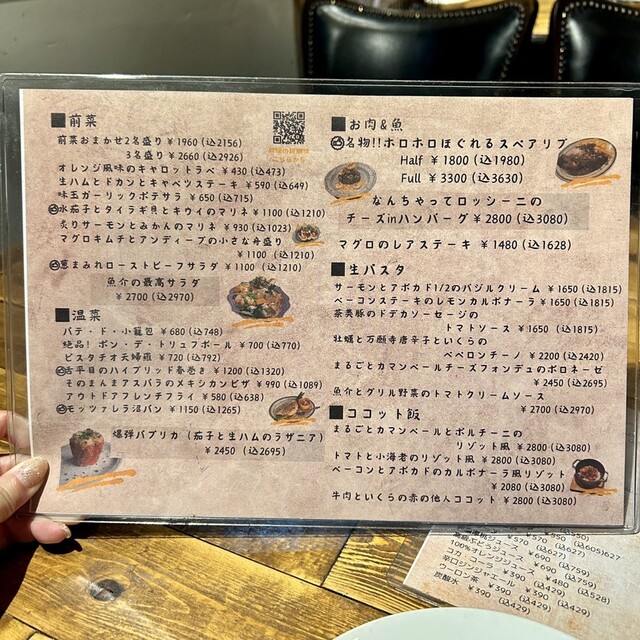 ■前菜
前菜おまかせ2名盛り ¥1960(込2156)
3名盛り ¥2660(込2926)
オレンジ風味のキャロットラペ ¥430(込473)
生ハムとドカンとキャベツステーキ ¥590(込649)
味玉ガーリックポテサラ ¥650(込715)
水茄子とタイラギ貝とキウイのマリネ ¥1100(込1210)
炙りサーモンとみかんのマリネ ¥930(込1023)
マグロキムチとアンディーブの小さな舟盛り
¥1100(込1210)
恵まみれローストビーフサラダ ¥1100(込1210)
魚介の最高サラダ
¥2700(込2970)
■温菜
パテ・ド・小籠包 ¥680(込748)
絶品!ポン・デ・トリュフボール ¥700(込770)
ピスタチオ天婦羅 ¥720(込792)
舌平目のハイブリッド春巻き ¥1200(込1320)
そのまんまアスパラのメキシカンピザ ¥990(込1089)
アウトドアフレンチフライ ¥580(込638)
モッツァレラ沼パン ¥1150(込1265)
爆弾パプリカ(茄子と生ハムのラザニア)
¥2450(込2695)
■お肉&魚
名物!!ホロホロほぐれるスペアリブ
Half ¥1800(込1980)
Full ¥3300(込3630)
なんちゃってロッシーニの
チーズinハンバーグ¥2800(込3080)
マグロのレアステーキ ¥1480(込1628)
■生パスタ
サーモンとアボカド1/2のバジルクリーム ¥1650(込1815)
ベーコンステーキのレモンカルボナーラ ¥1650(込1815)
茶美豚のドデカソーセージの
トマトソース ¥1650(込1815)
牡蠣と万願寺唐辛子といくらの
ペペロンチーノ ¥2200(込2420)
まるごとカマンベールチーズフォンデュのボロネーゼ
¥2450(込2695)
魚介とグリル野菜のトマトクリームソース
¥2700(込2970)
■ココット飯
まるごとカマンベールとポルチーニの
リゾット風 ¥2800(込3080)
トマトと小海老のリゾット風 ¥2800(込3080)
ベーコンとアボカドのカルボナーラ風リゾット
¥2080(込3080)
牛肉といくらの赤の他人ココット ¥2800(込3080)
¥570(込627)
¥690(込759)
100%オレンジジュース ¥690(込759)
コカ・コーラ ¥390(込429)
辛口ジンジャエール ¥480(込528)
ウーロン茶 ¥390(込429)
炭酸水 ¥390(込429)